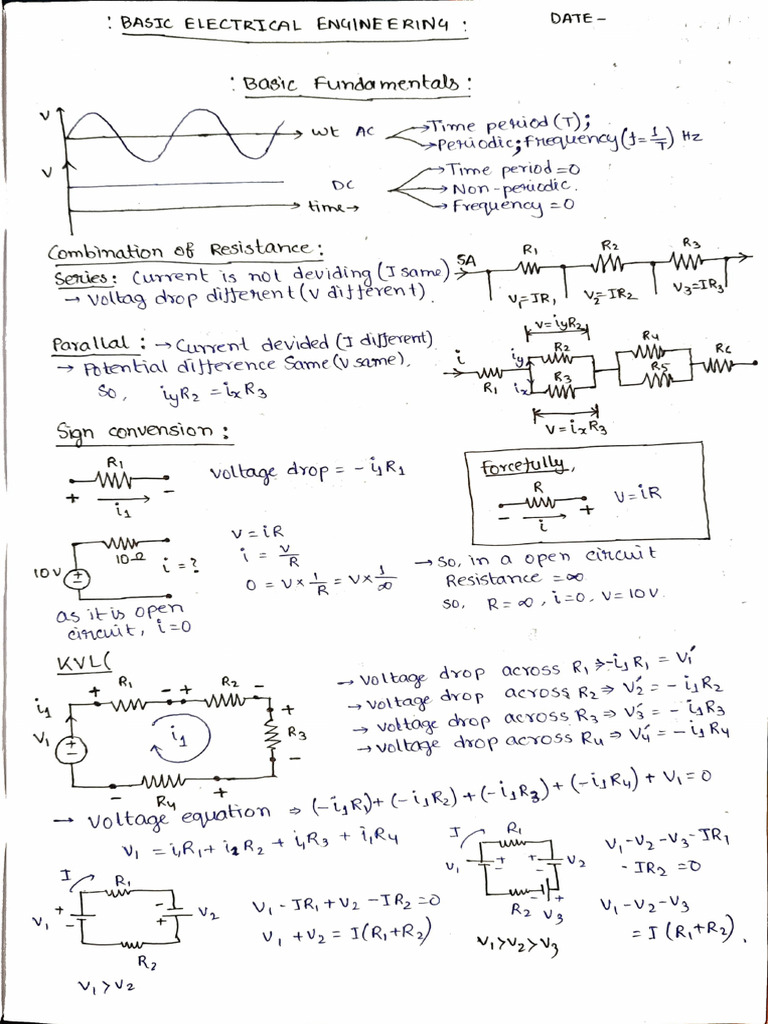 : BASIC ELECTRICAL ENGINEERING :
DATE -
: Basic Fundamentals :
V
wt AC
→ Time period (T);
→ Periodic; Frequency (f = 1/T) Hz
V
DC
time →
→ Time period = 0
→ Non-periodic.
→ Frequency = 0
Combination of Resistance :
Series : Current is not deviding (I same)
→ Voltag drop different (V different).
5A R1 R2 R3
V1=IR1 V2=IR2 V3=IR3
Parallal : → Current devided (I different)
→ Potential difference Same (V same).
So, iyR2 = ixR3
V=iyR2
i R1 iy R2 ix R3 R4 R5 R6
V=ixR3
Sign convension :
R1
+ i1 -
voltage drop = - i1R1
Forcefully,
R
- i +
V=iR
10V 10Ω i = ?
as it is open
circuit, i=0
V = iR
i = V/R
0 = V × 1/R = V × 1/∞
→ So, in a open circuit
Resistance = ∞
So, R=∞, i=0, V=10V.
KVL(
i1 + R1 - + R2 -
V1 + - i1 + R3 -
- R4 +
→ Voltage drop across R1 → -i1R1 = V1'
→ Voltage drop across R2 ⇒ V2' = - i1R2
→ Voltage drop across R3 ⇒ V3' = - i1R3
→ Voltage drop across R4 ⇒ V4' = - i1R4
→ Voltage equation ⇒ (-i1R1) + (-i1R2) + (-i1R3) + (-i1R4) + V1 = 0
V1 = i1R1 + i1R2 + i1R3 + i1R4
I R1
V1 + - - + V2
R2
V1 > V2
V1 - IR1 + V2 - IR2 = 0
V1 + V2 = I(R1+R2)
I R1
V1 + - + - V2
R2 - + V3
V1>V2>V3
V1-V2-V3-IR1
-IR2=0
V1-V2-V3
= I (R1+R2).